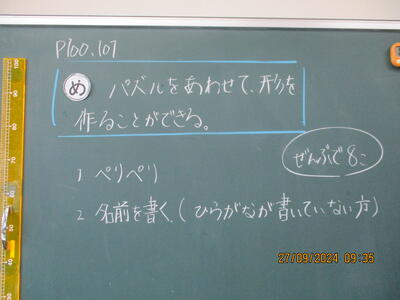 P100.101
め パズルをあわせて、形を
作ることができる。
ぜんぶで8こ
1 ぺりぺり
2 名前を書く。(ひらがなが書いていない方)
27/09/2024 09:35